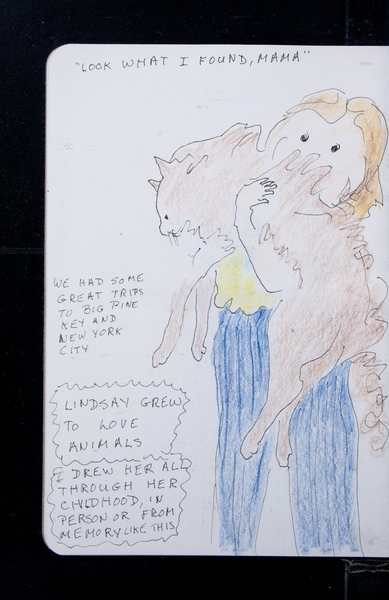 "LOOK WHAT I FOUND, MAMA"
WE HAD SOME
GREAT TRIPS
TO BIG PINE
KEY AND
NEW YORK
CITY
LINDSAY GREW
TO LOVE
ANIMALS
I DREW HER ALL
THROUGH HER
CHILDHOOD, IN
PERSON OR FROM
MEMORY LIKE THIS